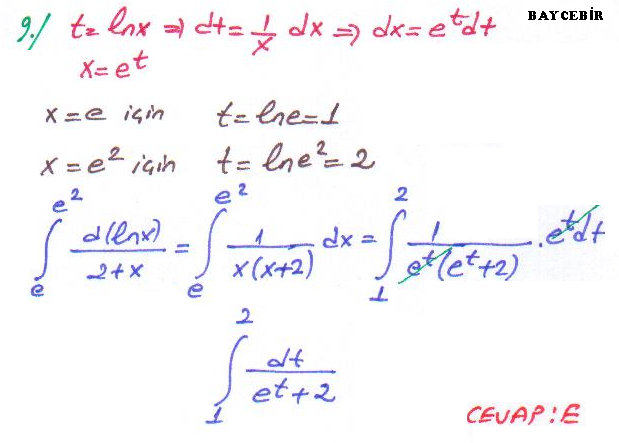 BAYCEBİR
9./ t = lnx ⇒ dt = 1/x dx ⇒ dx = e^t dt
x = e^t
x = e için t = lne = 1
x = e² için t = lne² = 2
∫_e^{e²} d(lnx)/(2+x) = ∫_e^{e²} 1/(x(x+2)) dx = ∫_1^2 1/(e^t(e^t+2)) . e^t dt
∫_1^2 dt/(e^t+2)
CEVAP : E